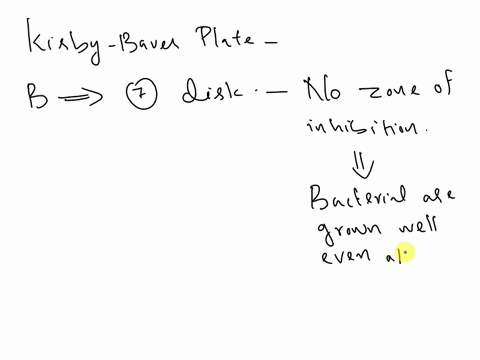 Kirby-Baver Plate -
B ⟹ 7 disk. - No zone of
inhibition.
⇓
Bacterial are
grown well
even al